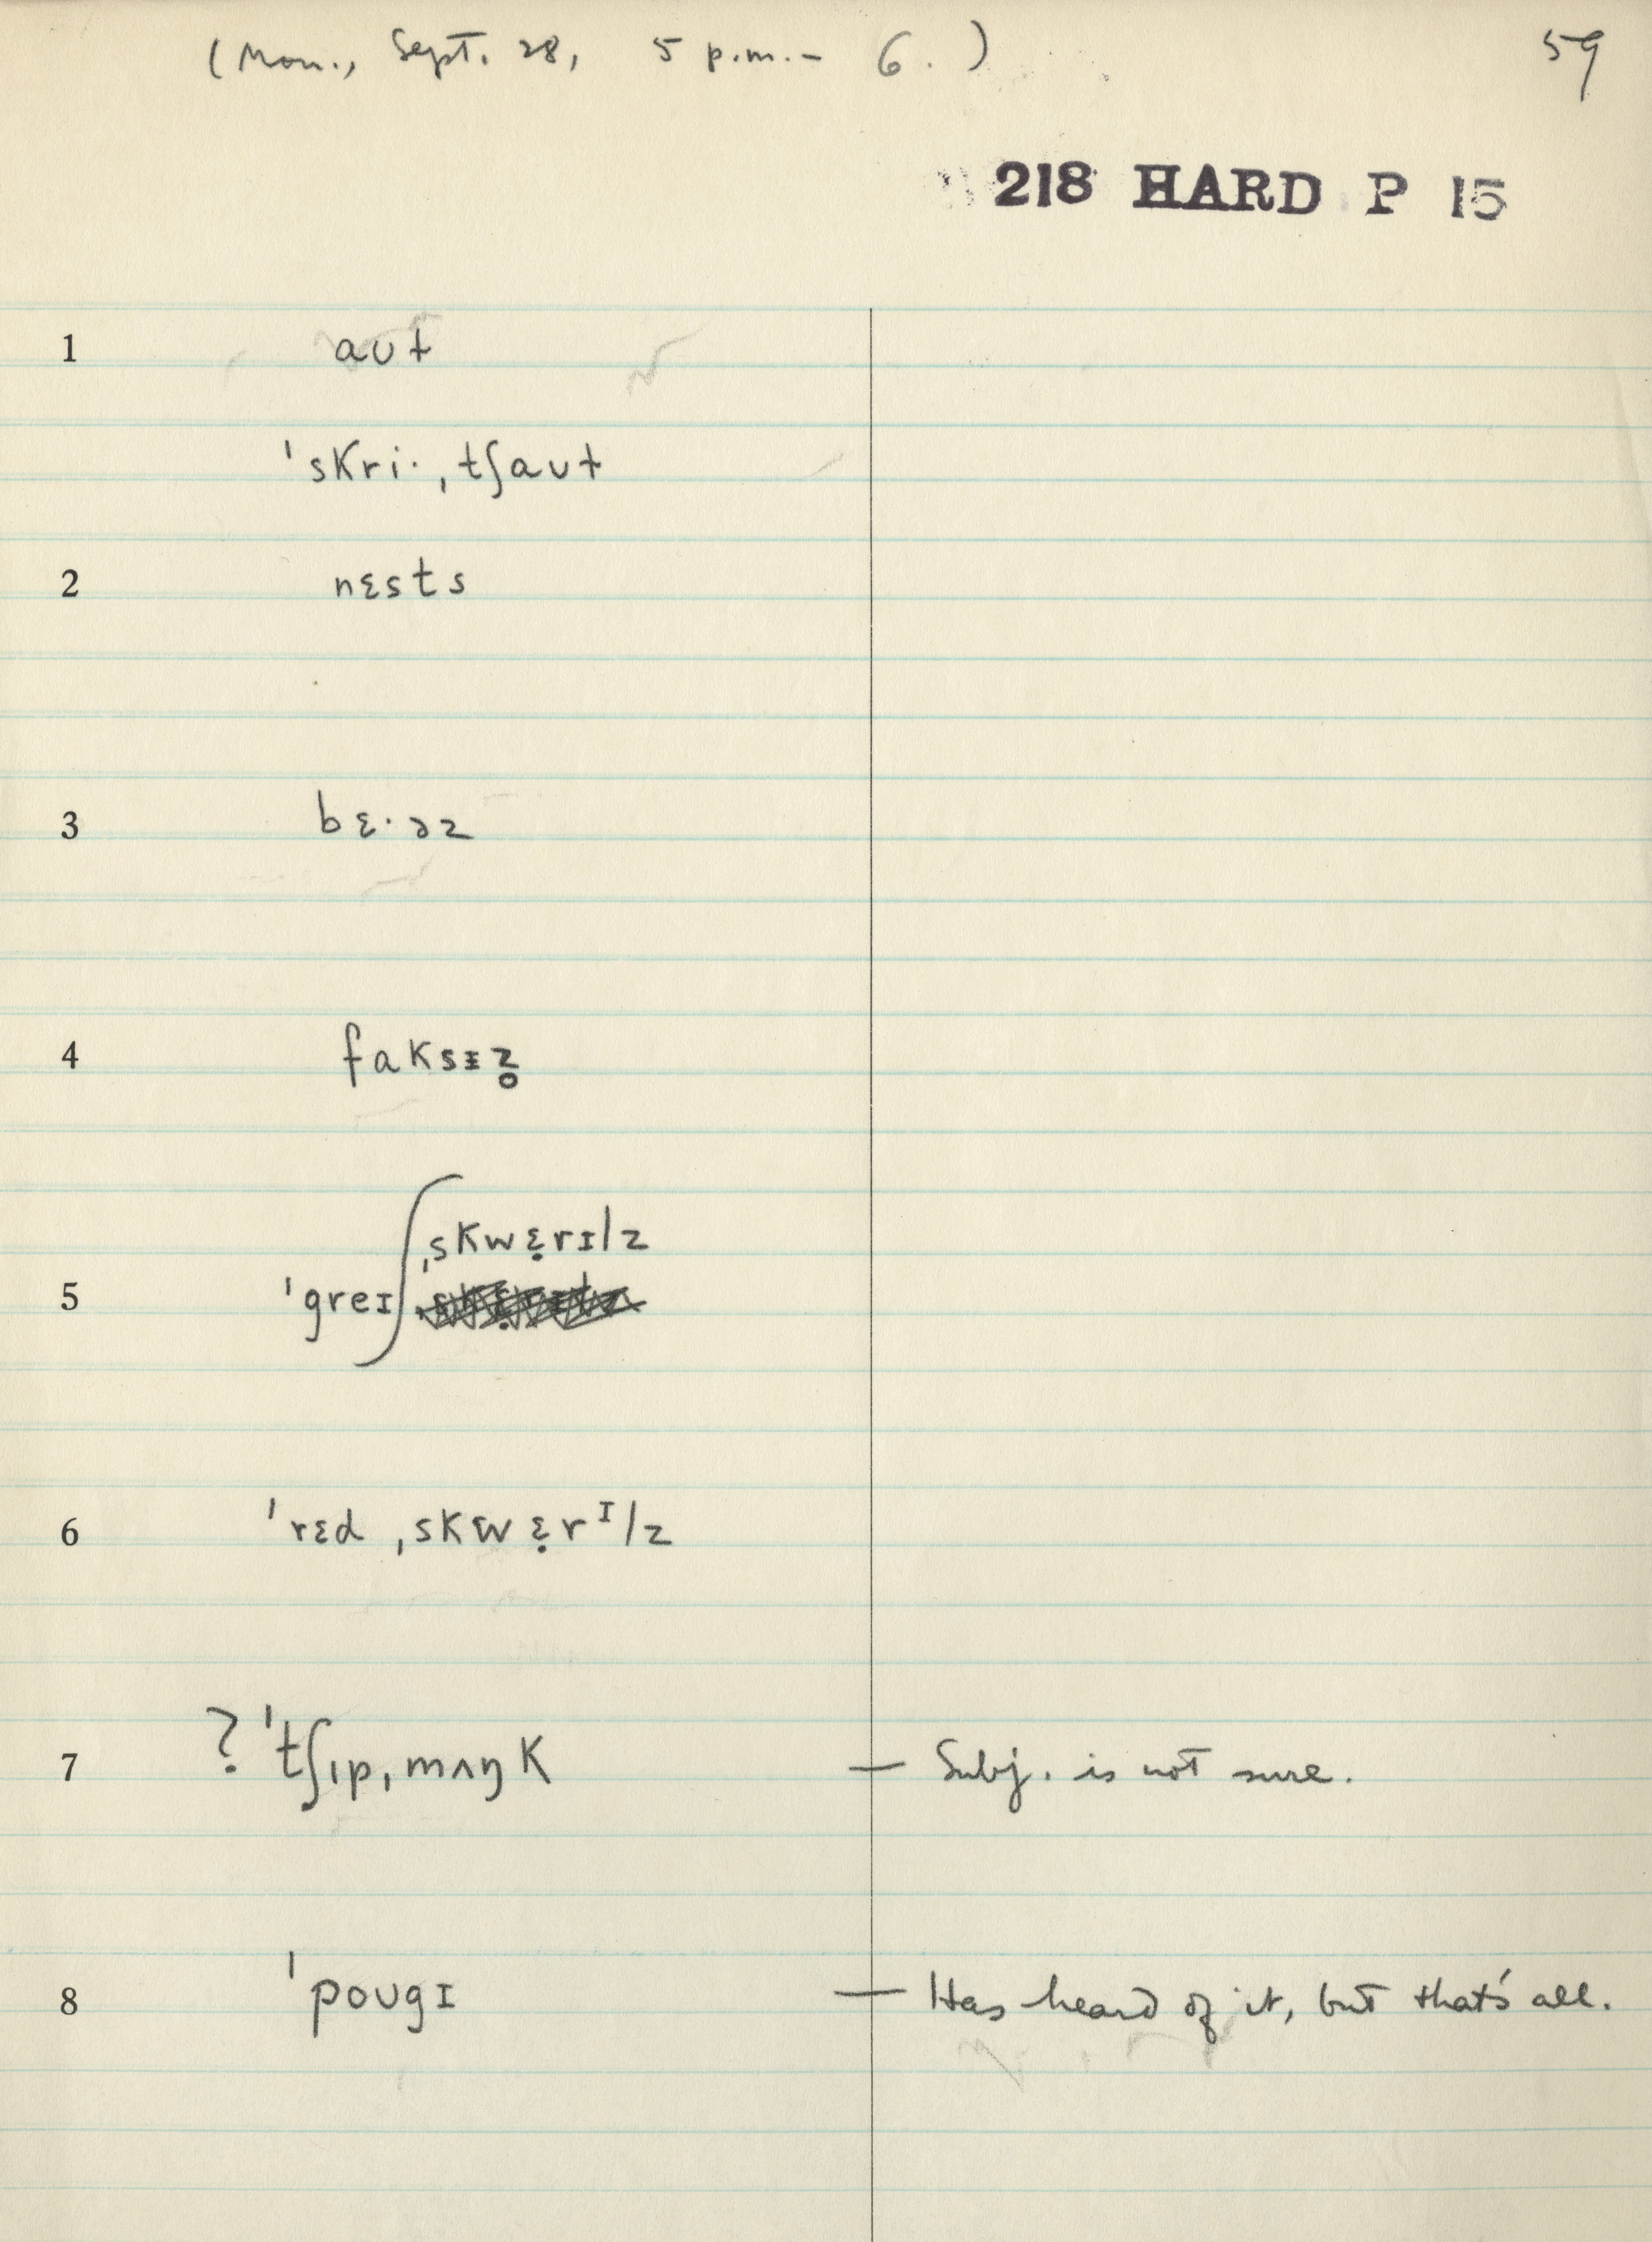 (Mon., Sept. 28, 5 p.m. – 6. )
59
218 HARD P 15
1 aʊt
ˈskriˑˌtʃaʊt
2 nɛsts
3 bɛˑəz
4 faksɪz̥
ˌskwɛ̣rɪlz
5 ˈgreɪ
6 ˈrɛd ˌskwɛ̣rᴵlz
7 ? ˈtʃɪpˌmʌŋk — Subj. is not sure.
8 ˈpoʊgɪ — Has heard of it, but that's all.